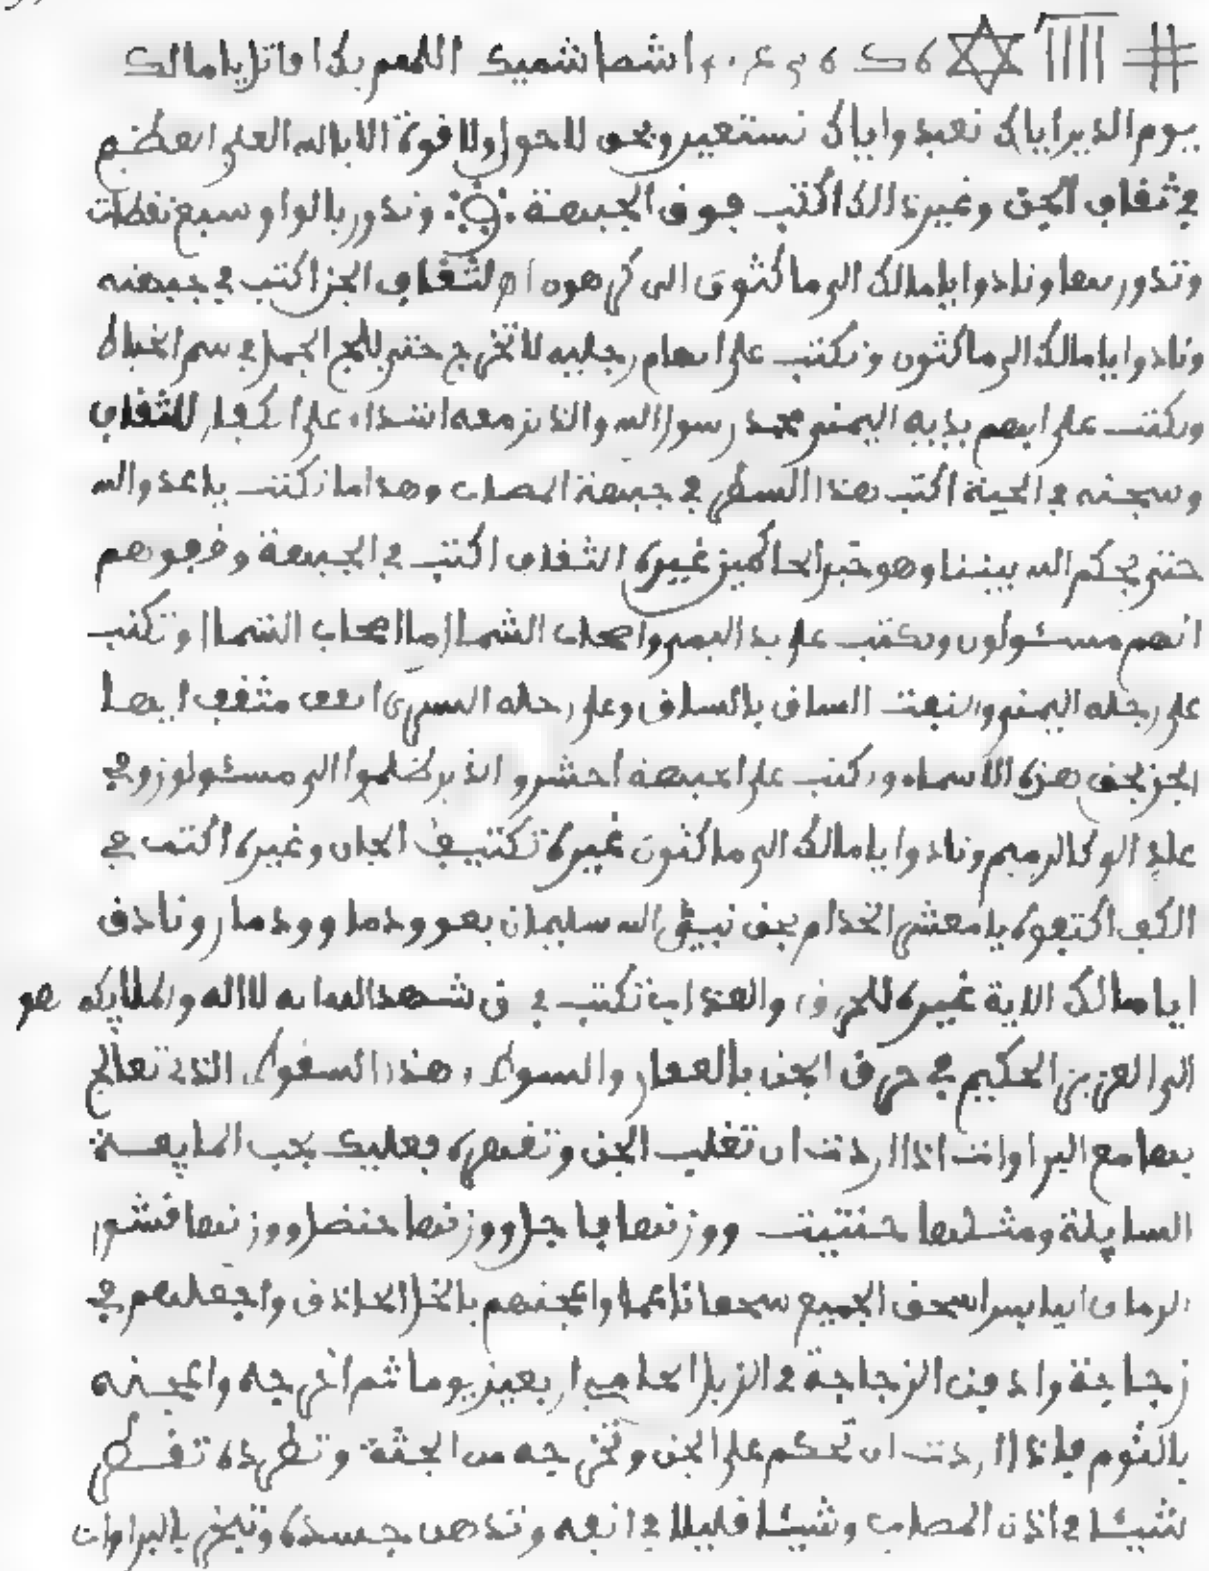 اشطاشميك اللهم بك اقاتل يا مالك
يوم الدين اياك نعبد واياك نستعين وبحق لا حول ولا قوة الا بالله العلي العظيم
في ثقاف الجن وغيره اكتب فوق الجبهة وتدور بالواو وسبع نقطات
وتدور بها ونادوا يا مالك الى ماكثون الى كرهون لثقاف الجن اكتب في جبهته
ونادوا يا مالك الى ماكثون وتكتب على ابهام رجليه لا تخرج حتى يلج الجمل في سم الخياط
وتكتب على ابهم يديه اليمنى محمد رسول الله والذين معه اشداء على الكفار للثقاف
وسجنه في الجثة اكتب هذا السطر في جبهة المصاب وهذا ما تكتب يا عدو الله
حتى يحكم الله بيننا وهو خير الحاكمين غيره الثقاف اكتب في الجبهة وقفوهم
انهم مسئولون وتكتب على يد اليمنى واصحاب الشمال ما اصحاب الشمال وتكتب
على رجله اليمنى والتفت الساق بالساق وعلى رجله اليسرى اقف مثقف ايها
الجن بحق هذه الاسماء وتكتب على الجبهة احشروا الذين ظلموا الى مسئولون وفي
ونادوا يا مالك الى ماكثون غيره تكتيف الجان وغيره اكتب في
الكف اكتفوه يا معشر الخدام بحق نبي الله سليمان ونادى
ايا مالك الاية غيره للحرق والعذاب تكتب في شهد الله انه لا اله والملايكة هو
الى العزيز الحكيم في حرق الجن بالعقار والسوط هذا السقوط الذي تعالج
بها مع البراوات اذا اردت ان تغلب الجن وتقهره فعليك بحب
السايلة ومثلها حنتيت ووزنها ووزنها حنضل ووزنها قشور
الرمان اليابس اسحق الجميع سحقا ناعما واعجنهم بالخل الحاذق واجعلهم في
زجاجة وادفن الزجاجة في الزبل الحامي اربعين يوما ثم اخرجه واعجنه
بالثوم فاذا اردت ان تحكم على الجن وتخرجه من الجثة وتطرده تقطر
شيئا في اذن المصاب وشيئا قليلا في انفه وتدهن جسده وتبخر بالبراوات